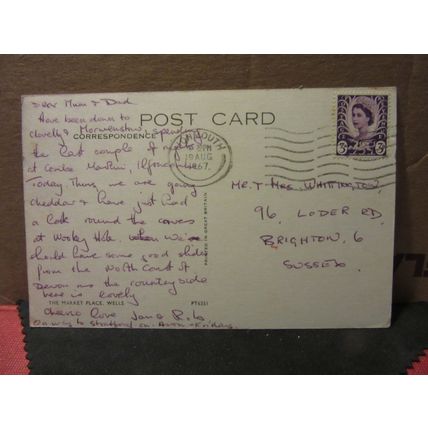 Dear Mum & Dad
Have been down to
Clovelly & Morwenstow, spending
the last couple of nights
at Combe Martin, Ilfracombe
Today, Thurs, we are going
Cheddar & have just had
a look round the caves
at Wookey Hole. We
should have some good slides
from the North Coast of
Devon as the country side
here is lovely
Cheerio love Jane & 
On way to Stratford on Avon - Friday.
THE MARKET PLACE, WELLS PT6351
POST CARD
CORRESPONDENCE
PRINTED IN GREAT BRITAIN
PM
AUG
1967
3D 3D
MR. & MRS. WHITTINGTON,
96, LODER RD.
BRIGHTON. 6
SUSSEX